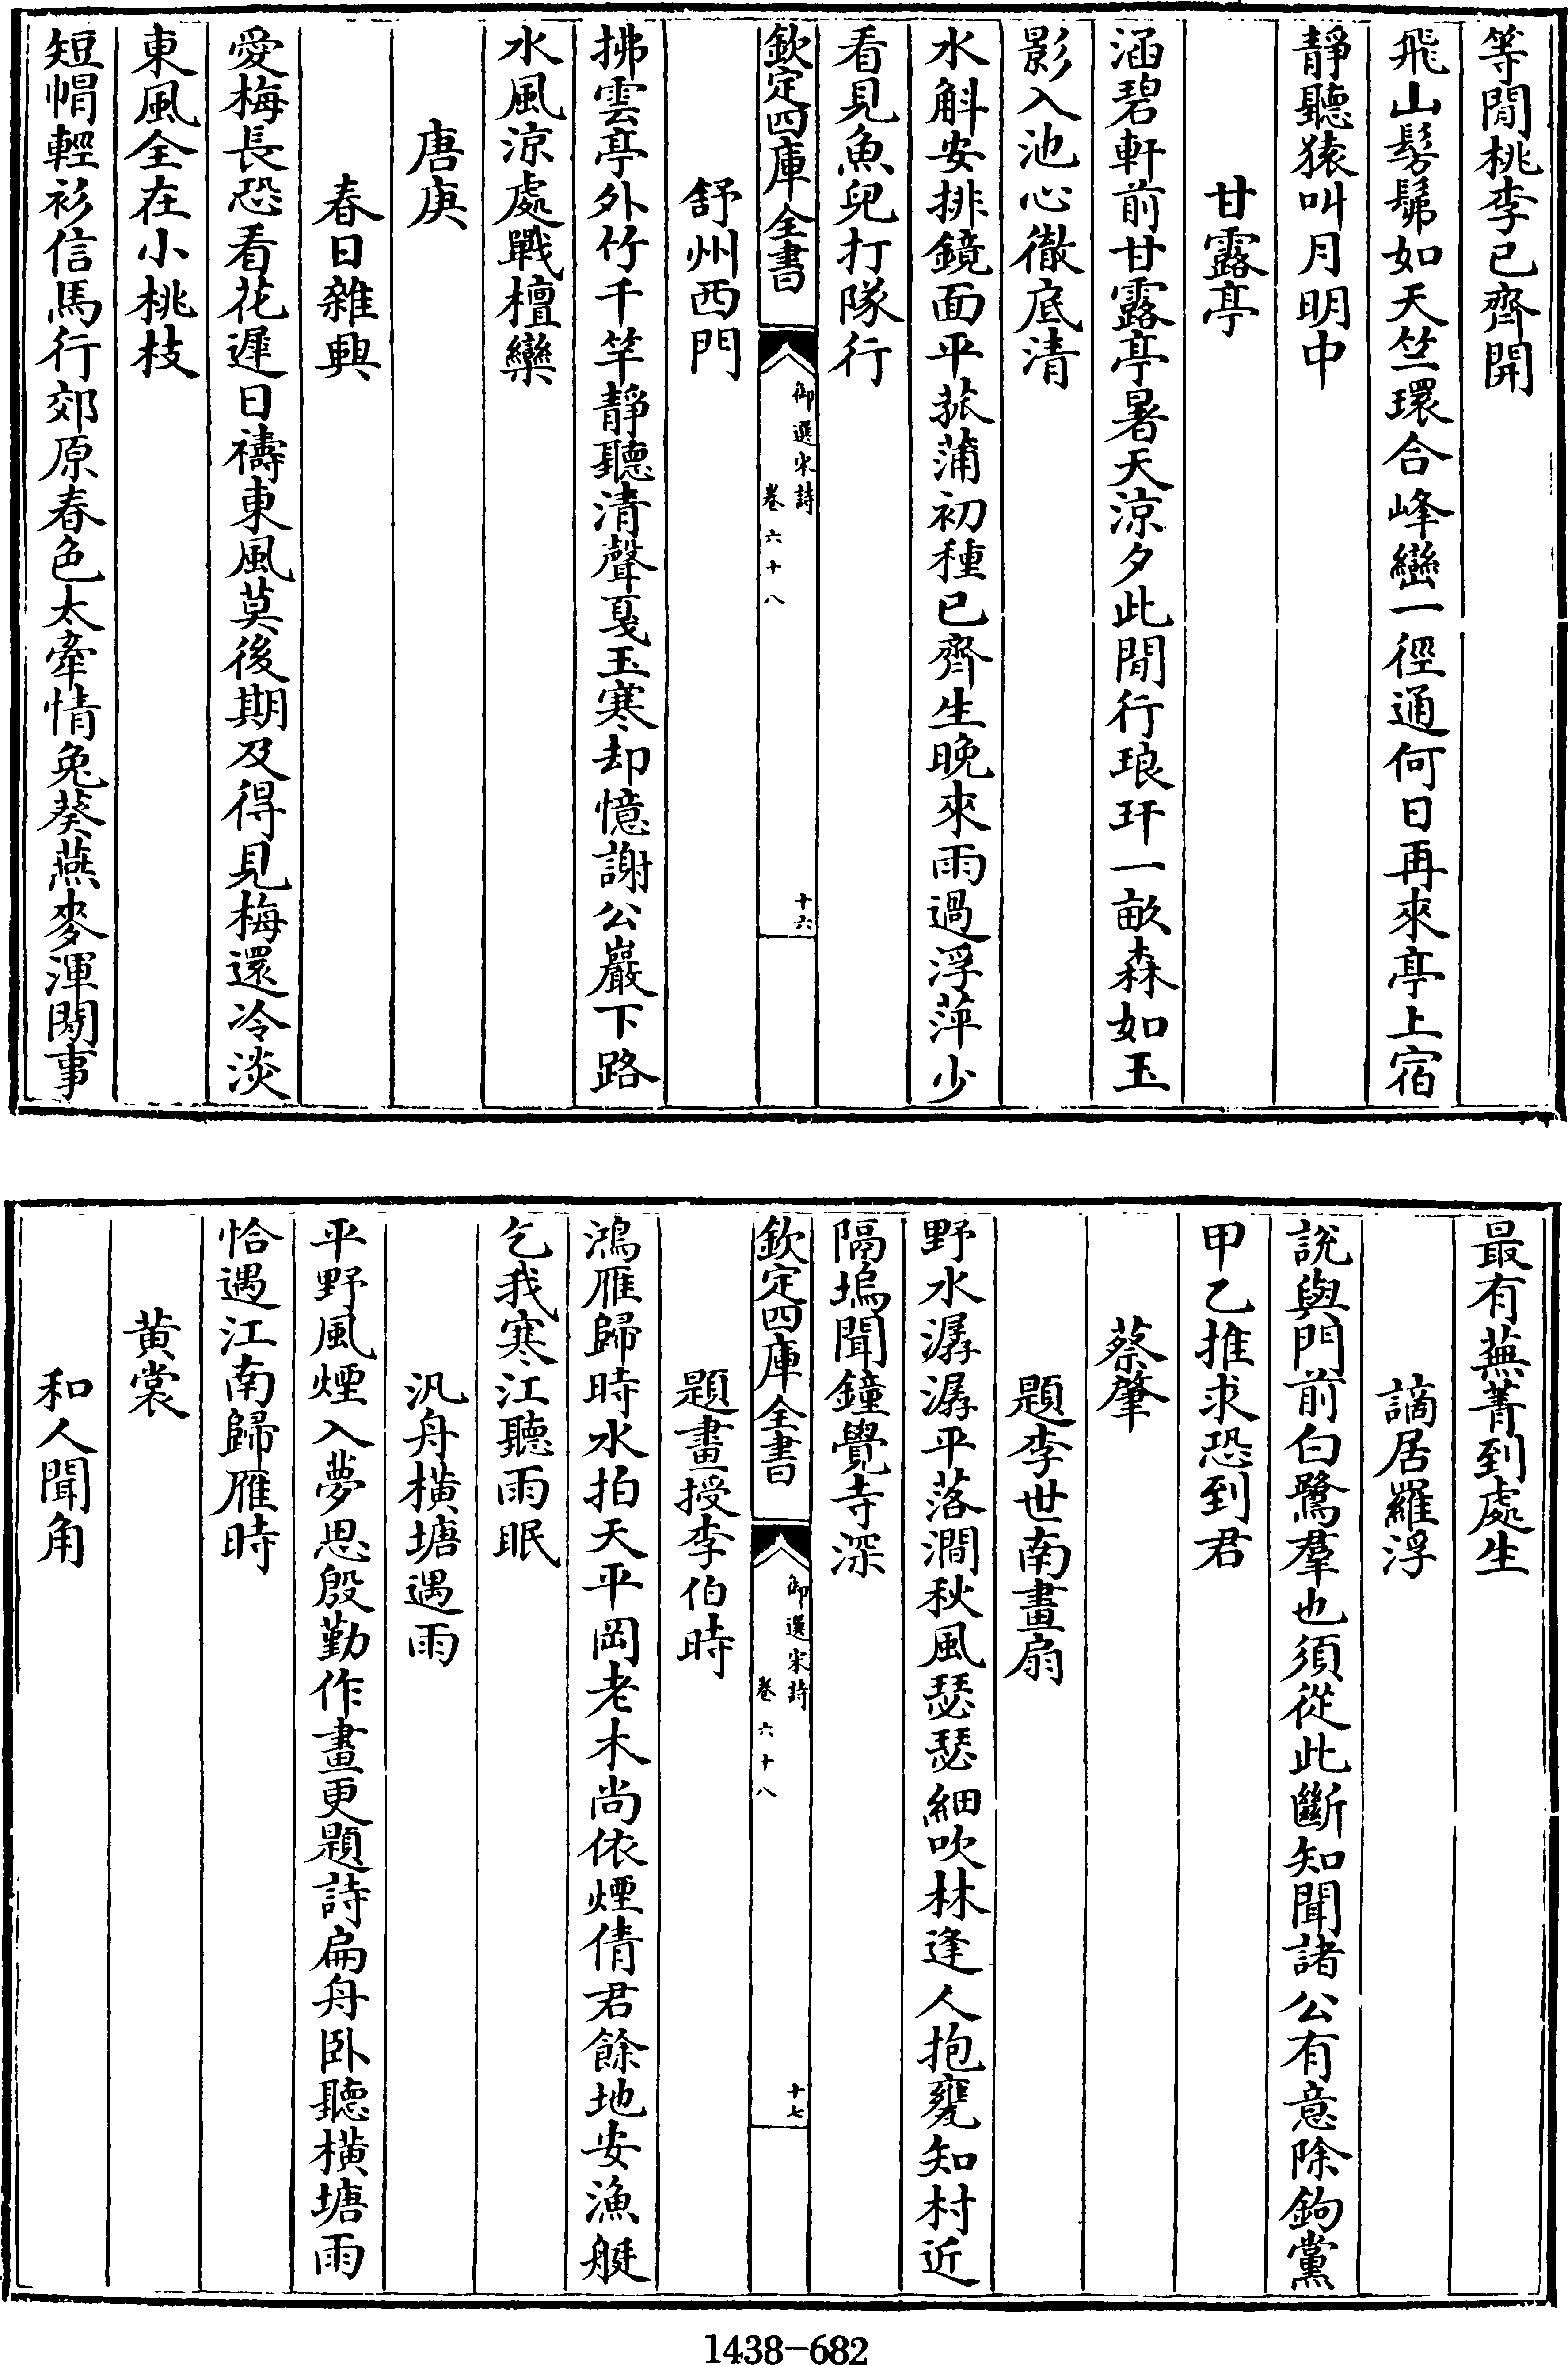 等閒桃李已齊開
飛山髣髴如天竺環合峰巒一徑通何日再來亭上宿
靜聽猿叫月明中
甘露亭
涵碧軒前甘露亭暑天涼夕此閒行琅玕一畝森如玉
影入池心徹底清
水斛安排鏡面平菰蒲初種已齊生晚來雨過浮萍少
看見魚兒打隊行
欽定四庫全書
御選宋詩
卷六十八
十六
舒州西門
拂雲亭外竹千竿靜聽清聲戛玉寒却憶謝公巖下路
水風涼處戰檀欒
唐庚
春日雜興
愛梅長恐看花遲日禱東風莫後期及得見梅還冷淡
東風全在小桃枝
短帽輕衫信馬行郊原春色太牽情兔葵燕麥渾閒事
最有蕪菁到處生
謫居羅浮
說與門前白鷺羣也須從此斷知聞諸公有意除鉤黨
甲乙推求恐到君
蔡肇
題李世南畫扇
野水潺潺平落澗秋風瑟瑟細吹林逢人抱甕知村近
隔塢聞鐘覺寺深
欽定四庫全書
御選宋詩
卷六十八
十七
題畫授李伯時
鴻雁歸時水拍天平岡老木尚依煙倩君餘地安漁艇
乞我寒江聽雨眠
汎舟橫塘遇雨
平野風煙入夢思殷勤作畫更題詩扁舟卧聽橫塘雨
恰遇江南歸雁時
黃裳
和人聞角
1438-682